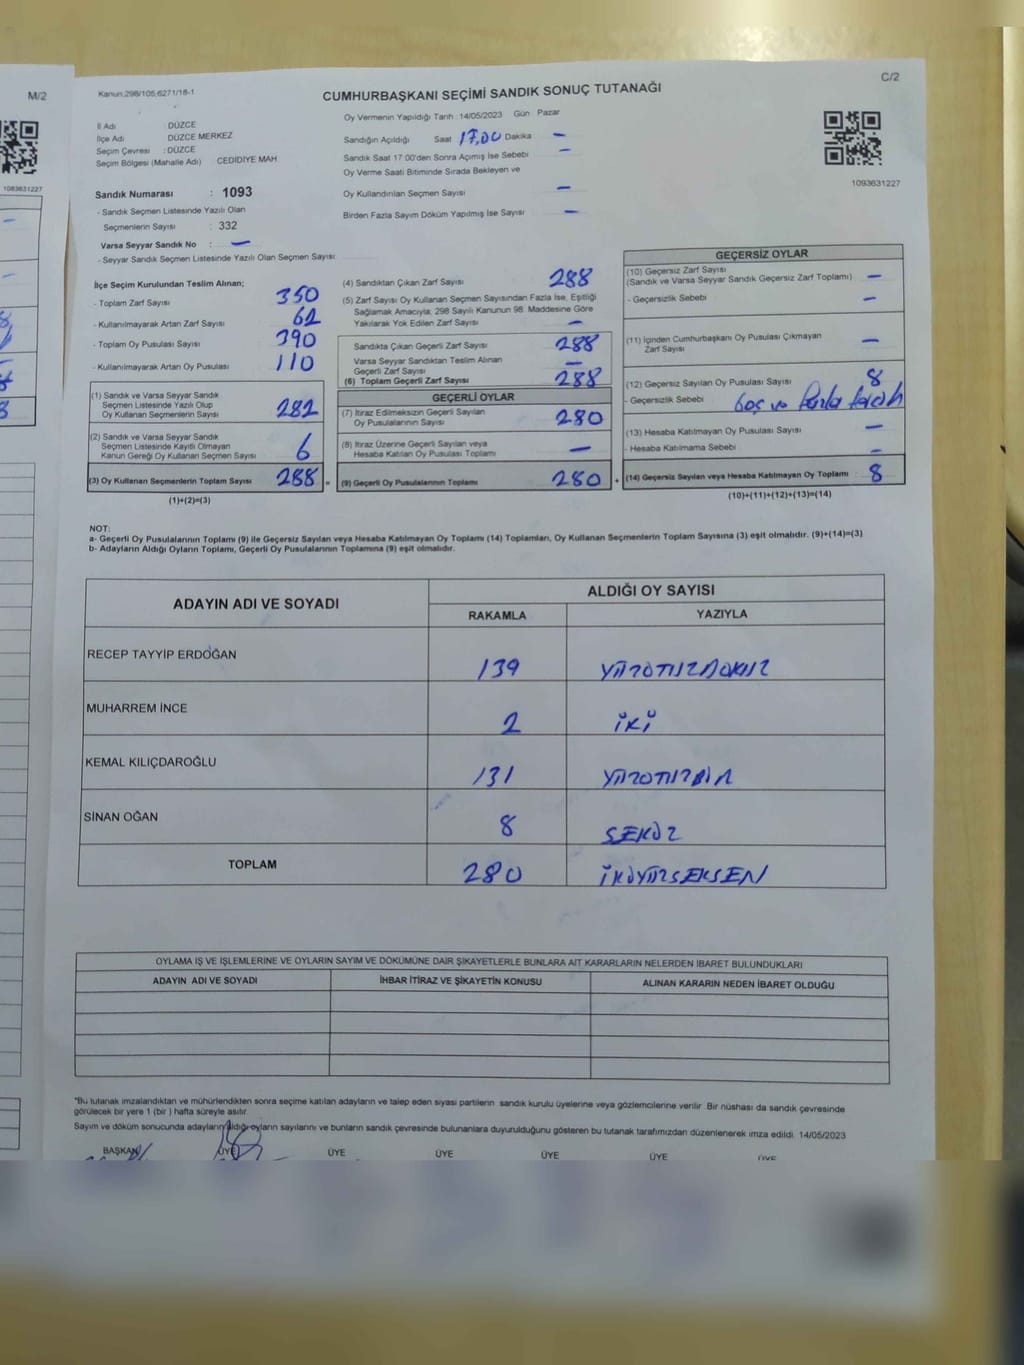 M/2
1093631227
C/2
Kanun:298/105,6271/18-1
CUMHURBAŞKANI SEÇİMİ SANDIK SONUÇ TUTANAĞI
İl Adı : DÜZCE
İlçe Adı : DÜZCE MERKEZ
Seçim Çevresi : DÜZCE
Seçim Bölgesi (Mahalle Adı) CEDİDİYE MAH.
Sandık Numarası : 1093
- Sandık Seçmen Listesinde Yazılı Olan
Seçmenlerin Sayısı : 332
Varsa Seyyar Sandık No : —
- Seyyar Sandık Seçmen Listesinde Yazılı Olan Seçmen Sayısı:
Oy Vermenin Yapıldığı Tarih : 14/05/2023 Gün Pazar
Sandığın Açıldığı Saat 17,00 Dakika —
Sandık Saat 17:00'den Sonra Açımış İse Sebebi —
Oy Verme Saati Bitiminde Sırada Bekleyen ve
Oy Kullandırılan Seçmen Sayısı —
Birden Fazla Sayım Döküm Yapılmış İse Sayısı —
1093631227
İlçe Seçim Kurulundan Teslim Alınan;
- Toplam Zarf Sayısı 350
- Kullanılmayarak Artan Zarf Sayısı 62
- Toplam Oy Pusulası Sayısı 390
- Kullanılmayarak Artan Oy Pusulası 110
(1) Sandık ve Varsa Seyyar Sandık
Seçmen Listesinde Yazılı Olup
Oy Kullanan Seçmenlerin Sayısı 282
(2) Sandık ve Varsa Seyyar Sandık
Seçmen Listesinde Kayıtlı Olmayan
Kanun Gereği Oy Kullanan Seçmen Sayısı 6
(3) Oy Kullanan Seçmenlerin Toplam Sayısı 288 =
(1)+(2)=(3)
(4) Sandıktan Çıkan Zarf Sayısı 288
(5) Zarf Sayısı Oy Kullanan Seçmen Sayısından Fazla İse, Eşitliği
Sağlamak Amacıyla; 298 Sayılı Kanunun 98. Maddesine Göre
Yakılarak Yok Edilen Zarf Sayısı —
Sandıkta Çıkan Geçerli Zarf Sayısı 288
Varsa Seyyar Sandıktan Teslim Alınan
Geçerli Zarf Sayısı —
(6) Toplam Geçerli Zarf Sayısı 288
GEÇERLİ OYLAR
(7) İtiraz Edilmeksizin Geçerli Sayılan
Oy Pusulalarının Sayısı 280
(8) İtiraz Üzerine Geçerli Sayılan veya
Hesaba Katılan Oy Pusulası Toplamı —
(9) Geçerli Oy Pusulalarının Toplamı 280 +
GEÇERSİZ OYLAR
(10) Geçersiz Zarf Sayısı
(Sandık ve Varsa Seyyar Sandık Geçersiz Zarf Toplamı) —
- Geçersizlik Sebebi —
(11) İçinden Cumhurbaşkanı Oy Pusulası Çıkmayan
Zarf Sayısı —
(12) Geçersiz Sayılan Oy Pusulası Sayısı 8
- Geçersizlik Sebebi boş ve fazla tercih
(13) Hesaba Katılmayan Oy Pusulası Sayısı —
- Hesaba Katılmama Sebebi —
(14) Geçersiz Sayılan veya Hesaba Katılmayan Oy Toplamı 8
(10)+(11)+(12)+(13)=(14)
NOT:
a- Geçerli Oy Pusulalarının Toplamı (9) ile Geçersiz Sayılan veya Hesaba Katılmayan Oy Toplamı (14) Toplamları, Oy Kullanan Seçmenlerin Toplam Sayısına (3) eşit olmalıdır. (9)+(14)=(3)
b- Adayların Aldığı Oyların Toplamı, Geçerli Oy Pusulalarının Toplamına (9) eşit olmalıdır.
ADAYIN ADI VE SOYADI
ALDIĞI OY SAYISI
RAKAMLA YAZIYLA
RECEP TAYYİP ERDOĞAN 139 YÜZOTUZDOKUZ
MUHARREM İNCE 2 İKİ
KEMAL KILIÇDAROĞLU 131 YÜZOTUZBİR
SİNAN OĞAN 8 SEKİZ
TOPLAM 280 İKİYÜZSEKSEN
OYLAMA İŞ VE İŞLEMLERİNE VE OYLARIN SAYIM VE DÖKÜMÜNE DAİR ŞİKAYETLERLE BUNLARA AİT KARARLARIN NELERDEN İBARET BULUNDUKLARI
ADAYIN ADI VE SOYADI İHBAR İTİRAZ VE ŞİKAYETİN KONUSU ALINAN KARARIN NEDEN İBARET OLDUĞU
*Bu tutanak imzalandıktan ve mühürlendikten sonra seçime katılan adayların ve talep eden siyasi partilerin sandık kurulu üyelerine veya gözlemcilerine verilir. Bir nüshası da sandık çevresinde
görülecek bir yere 1 (bir ) hafta süreyle asılır.
Sayım ve döküm sonucunda adayların aldığı oyların sayılarını ve bunların sandık çevresinde bulunanlara duyurulduğunu gösteren bu tutanak tarafımızdan düzenlenerek imza edildi. 14/05/2023
BAŞKAN ÜYE ÜYE ÜYE ÜYE ÜYE ÜYE